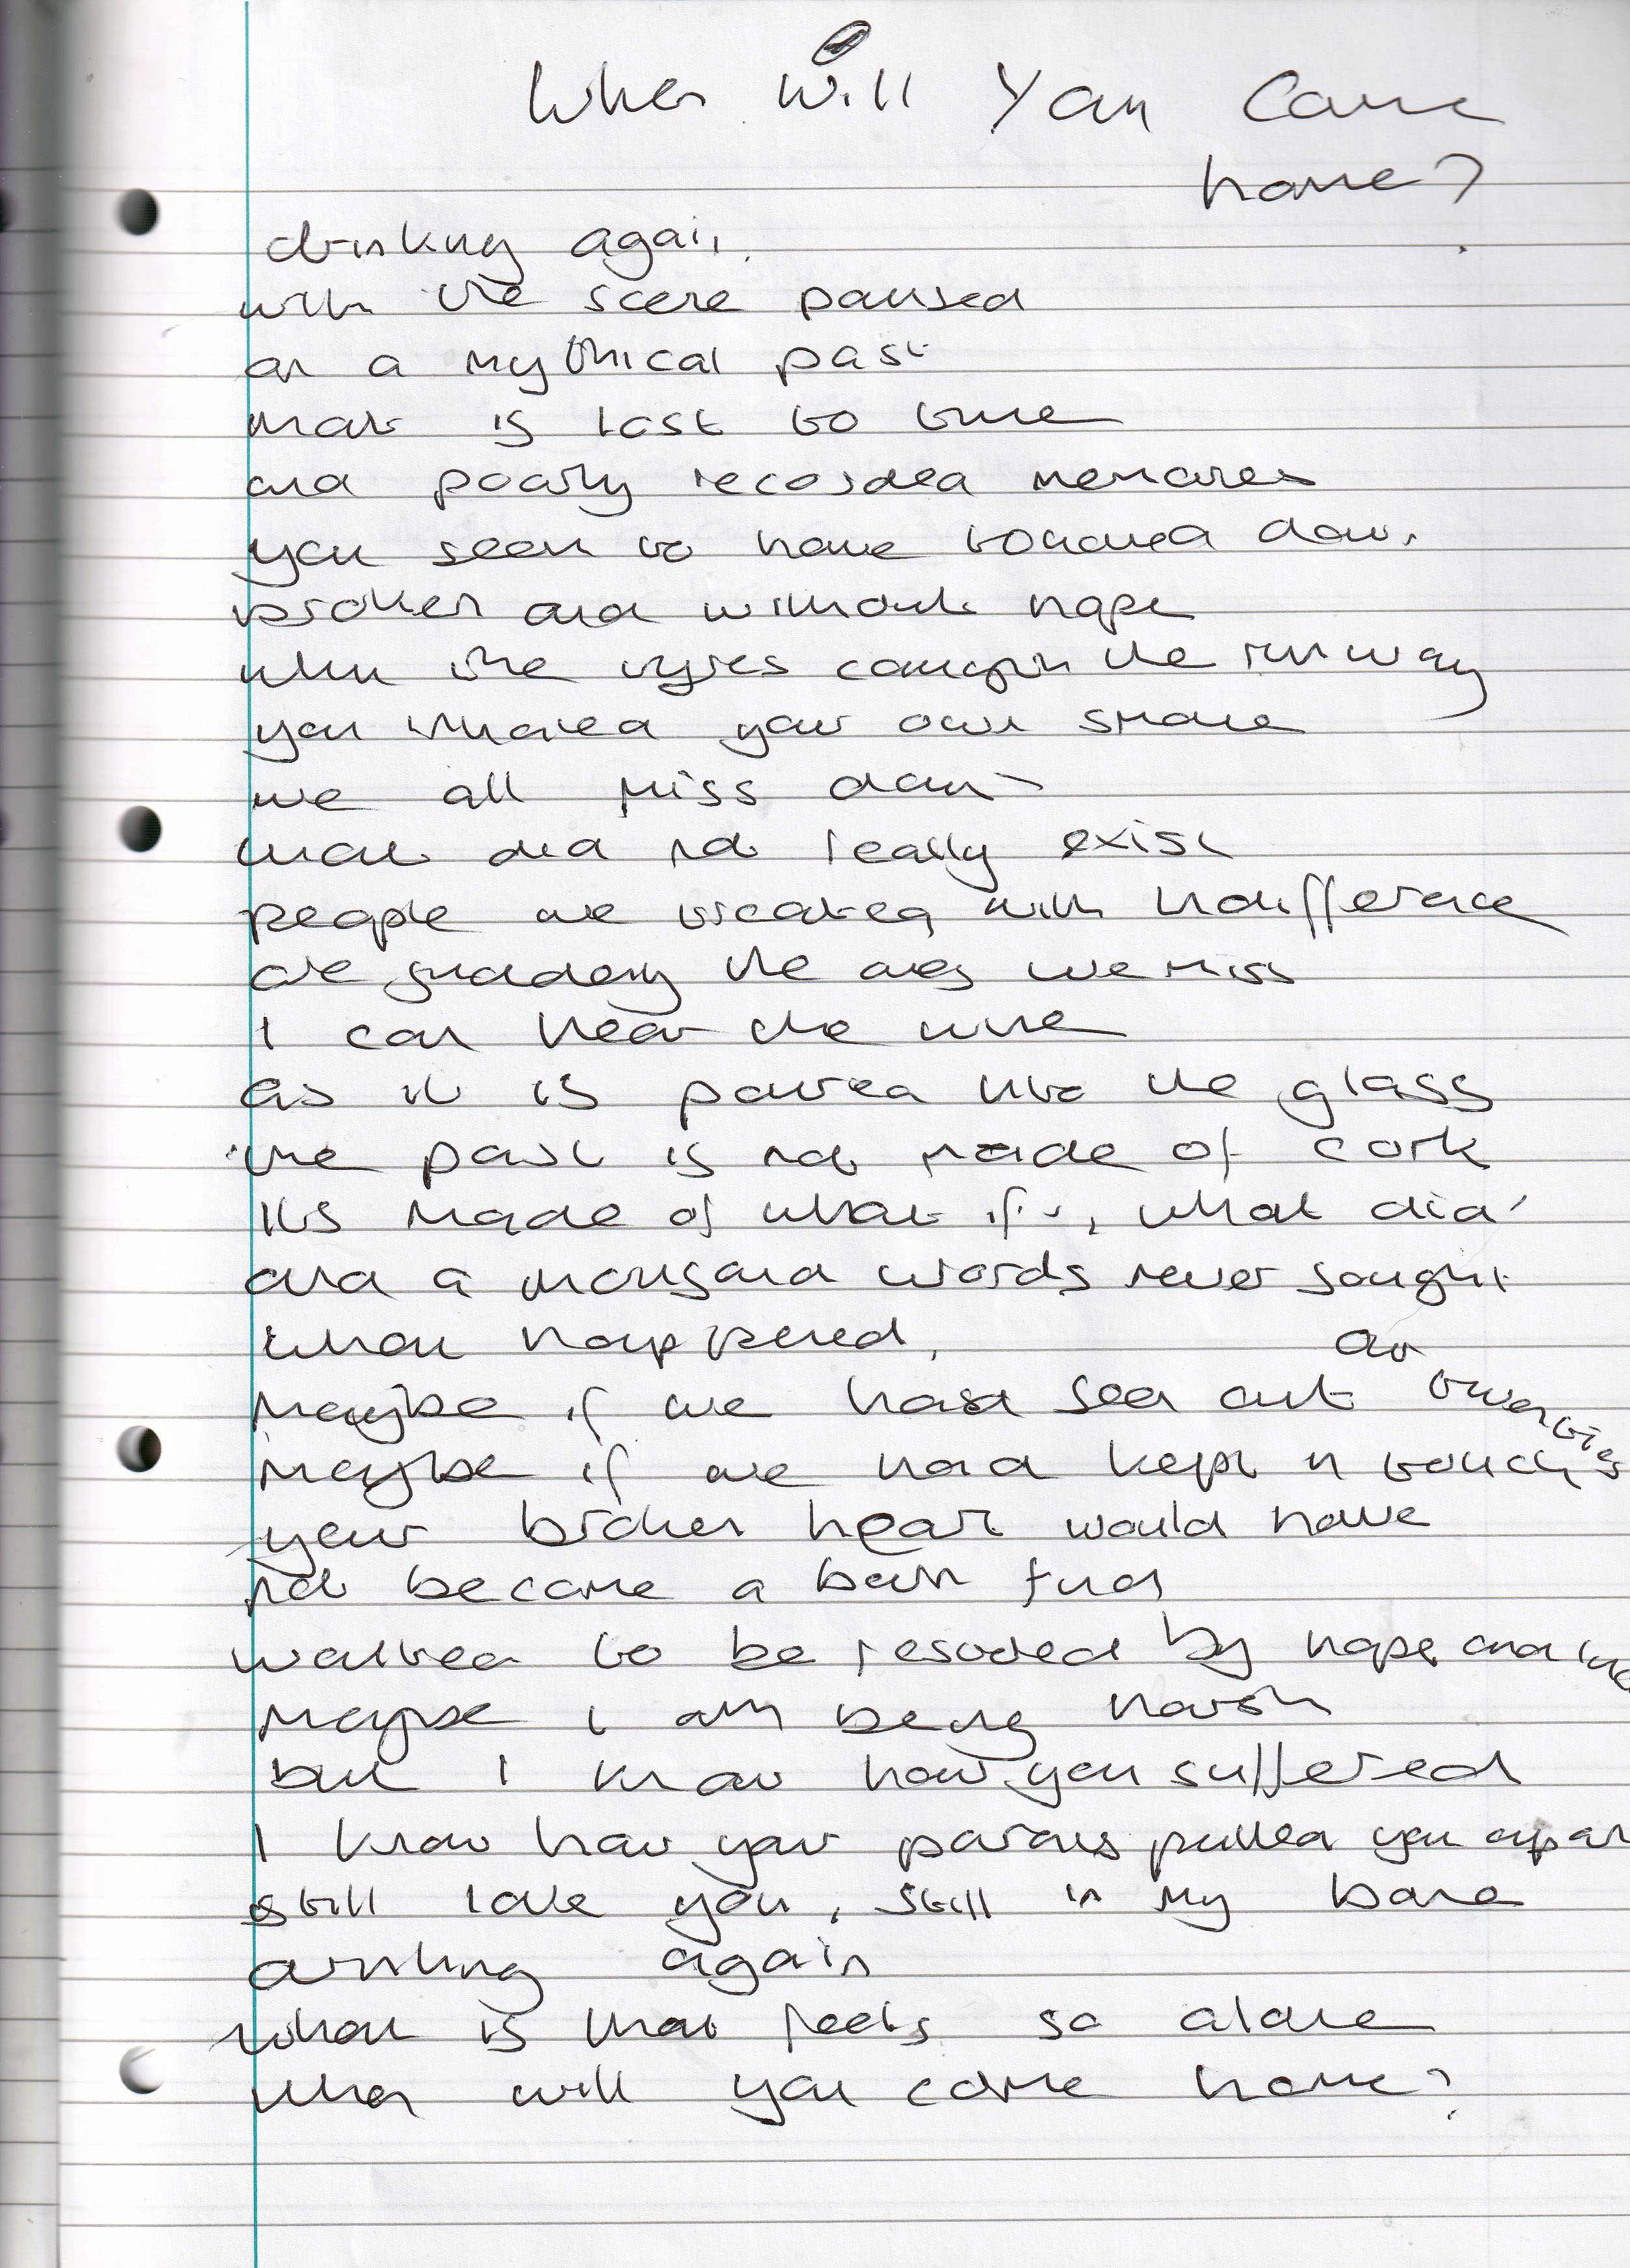 When Will You Come
home?
drinking again,
with the scene paused
on a mythical past
that is lost to time
and poorly recorded memories
you seem to have down,
broken and without hope
when the tyres the runway
you your own
we all miss
that did not really exist
people we treated with indifference
are suddenly the ones we miss
I can hear the wine
as it is poured into the glass
the past is not made of cork
its made of what ifs, what did
and a thousand words never sought
what happened,
our
maybe if we had seen out twenties
maybe if we had kept in touch
your broken heart would have
not become a
waited to be by hope and
maybe i am being harsh
but I know how you suffered
I know how your parents pulled you apart
still love you, still in my
drinking again
what is that feels so alone
when will you come home?